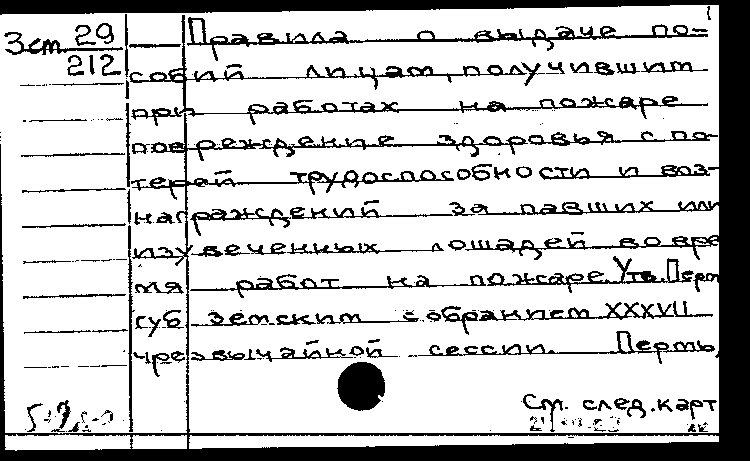 1
Зст 29
212
Правила о выдаче по-
собий лицам, получившим
при работах на пожаре
повреждение здоровья с по-
терей трудоспособности и воз-
награждений за павших или
изувеченных лошадей во вре
мя работ на пожаре. Утв. Перм
губ земским собранием XXXVII
чрезвычайной сессии. Пермь,
См. след. карт